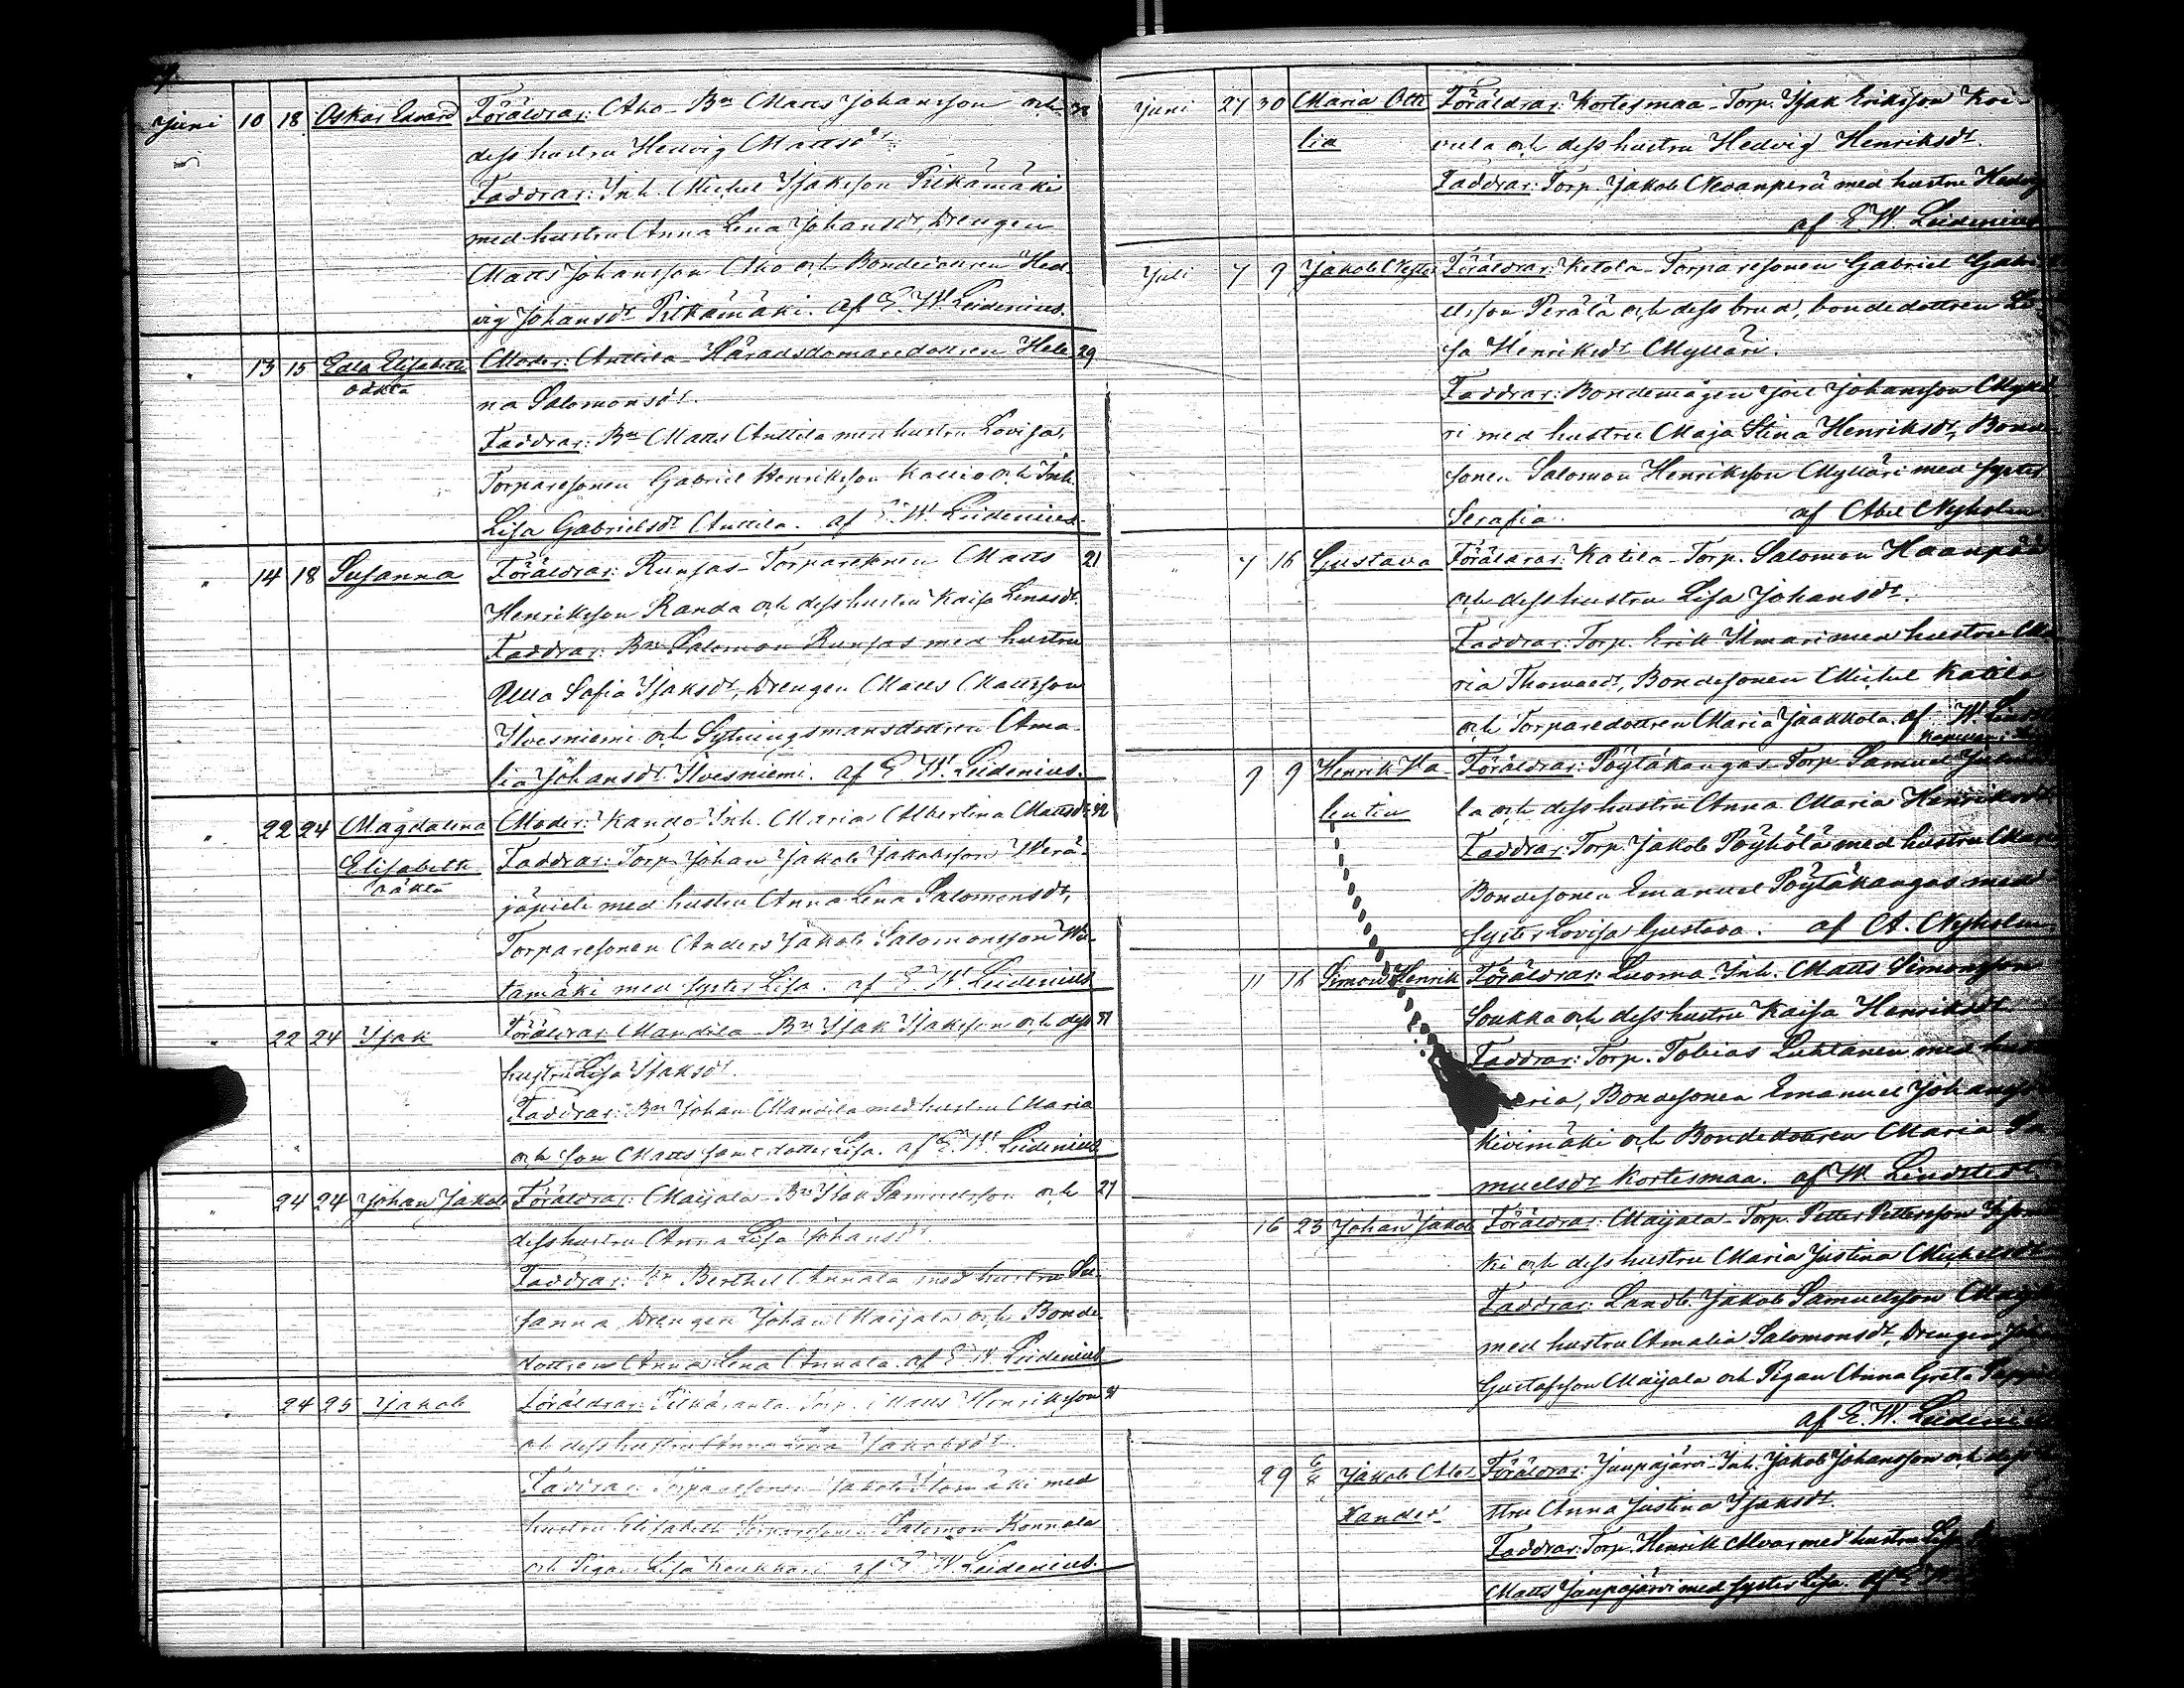 Juni 10 18 Oskar Edvard Föräldrar: Aho - Bn Matts Johansson och 38
dess hustru Hedvig Mattsdr
Faddrar: Inh. Michel Isaksson Pitkämäki
med hustru Anna Lena Johansdr, Drengen
Matts Johansson Aho och Bondedottren Hed-
vig Johansdr Pitkämäki. af E. W. Leidenius.
" 13 15 Edla Elisabeth Moder: Anttila - Häradsdomaredottren Hele 29
oäkta na Salomonsdr.
Faddrar: Bn Matts Anttila med hustru Lovisa,
Torparesonen Gabriel Henriksson Kallio och Inh.
Lisa Gabrielsdr Anttila. af E. W. Leidenius.
" 14 18 Susanna Föräldrar: Runsas - Torparesonen Matts 21
Henriksson Randa och dess hustru Kaisa Lenasdr.
Faddrar: Bn Salomon Runsas med hustru
Ulla Sofia Isaksdr, Drengen Matts Mattsson
Ilvesniemi och Sytningsmansdottren Ama-
lia Johansdr Ilvesniemi. af E W. Leidenius.
" 22 24 Magdalena Moder: Kando - Inh. Maria Albertina Mattsdr 32
Elisabeth Faddrar: Torp. Johan Jakob Jakobsson Werä-
oäkta jäpieli med hustru Anna Lena Salomonsdr,
Torparesonen Anders Jakob Salomonsson
tamäki med syster Lisa. af E. W. Leidenius
" 22 24 Isak Föräldrar: Mandila - Bn Isak Isaksson och dess 31
hustru Lisa Isaksdr.
Faddrar: Bn Johan Mandila med hustru Maria
och son Matts samt dotter Lisa. af E. W. Leidenius
" 24 24 Johan Jakob Föräldrar: Maijala - Bn Isak Samuelsson och 27
dess hustru Anna Lisa Johansdr.
Faddrar: Bn Berthel Annala med hustru Su-
sanna, Drengen Johan Maijala och Bonde-
dottren Anna Lena Annala. af E W. Leidenius
" 24 25 Jakob Föräldrar: Torp. Matts Henriksson 31
och dess hustru Anna Jakobsdr.
Faddrar: Torparesonen Jakob med
hustru Elisabeth, Salomon Konnala
och Pigan Lisa af E W. Leidenius.
Juni 27 30 Maria Otti Föräldrar: Kortesmaa - Torp. Isak Eriksson Koi-
lia vula och dess hustru Hedvig Henriksdr.
Faddrar: Torp. Jakob Nevanperä med hustru Hedvig
af E W. Leidenius
Juli 7 9 Jakob Föräldrar: Ketola - Torparesonen Gabriel Gabri
elsson Perälä och dess brud, bondedottren
sa Henriksdr Mylläri.
Faddrar: Bondemågen Joel Johansson
ri med hustru Maja Stina Henriksdr, Bonde
sonen Salomon Henriksson Mylläri med syster
Serafia. af Abel Nyholm
" 7 16 Gustava Föräldrar: Katila - Torp. Salomon Haanpää
och dess hustru Lisa Johansdr.
Faddrar: Torp. Erik Ilmari med hustru Ma
ria Thomasdr, Bondesonen Michel Katila
och Torparedottren Maria Jaakkola. af W.
9 9 Henrik Va- Föräldrar: Pöytäkangas - Torp. Samuel
lentin la och dess hustru Anna Maria Henriksdr
Faddrar: Torp. Jakob Pöyhölä med hustru
Bondesonen Emanuel Pöytäkangas med
syster Lovisa Gustava. af A. Nyholm.
11 16 Simon Henrik Föräldrar: Luoma - Inh. Matts Simonsson
Soukka och dess hustru Kaisa Henriksdr.
Faddrar: Torp. Tobias Luhtanen med
Maria, Bondesonen Emanuel Johansson
Kivimäki och Bondedottren Maria Sa
muelsdr Kortesmaa. af W Lindstedt
" 16 23 Johan Jakob Föräldrar: Maijala - Torp. Petter Pettersson
ki och dess hustru Maria Justina Michelsdr
Faddrar: Landb. Jakob Samuelsson
med hustru Amalia Salomonsdr, Drengen
Gustafsson Maijala och Pigan Anna Greta
af E. W. Leidenius
" 29 6/8 Jakob Alex Föräldrar: Juupajärvi - Inh. Jakob Johansson och dess
xander stru Anna Justina Isaksdr.
Faddrar: Torp. Henrik Alvar med hustru Lisa
Matts Juupajärvi med syster Lisa. af E W